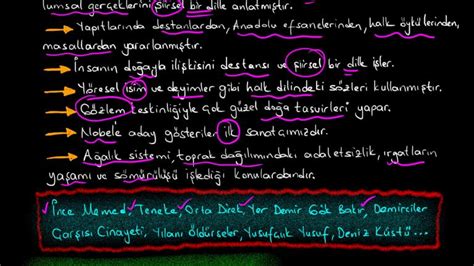 lumsal gerçeklerini şiirsel bir dille anlatmıştır.
Yapıtlarında destanlardan, Anadolu efsanelerinden, halk öykülerinden,
masallardan yararlanmıştır.
İnsanın doğayla ilişkisini destansı ve şiirsel bir dille işler.
Yöresel isim ve deyimler gibi halk dilindeki sözleri kullanmıştır.
Gözlem keskinliğiyle çok güzel doğa tasvirleri yapar.
Nobel'e aday gösterilen ilk sanatçımızdır.
Ağalık sistemi, toprak dağılımındaki adaletsizlik, ırgatların
yaşamı ve sömürülüşü işlediği konulardandır.
İnce Memed, Teneke, Orta Direk, Yer Demir Gök Bakır, Demirciler
Çarşısı Cinayeti, Yılanı Öldürseler, Yusufçuk Yusuf, Deniz Küstü...